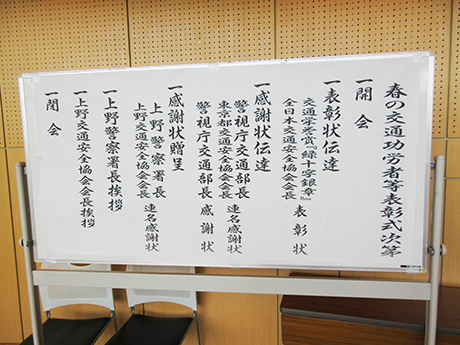 春の交通功労者等表彰式次第
一開会
一表彰状伝達
交通栄誉賞『緑十字銀章』
全日本交通安全協会会長 表彰状
一感謝状伝達
警視庁交通部長
東京都交通安全協会会長 連名感謝状
警視庁交通部長 感謝状
一感謝状贈呈
上野警察署長
上野交通安全協会会長 連名感謝状
一上野警察署長挨拶
一上野交通安全協会会長挨拶
一閉会